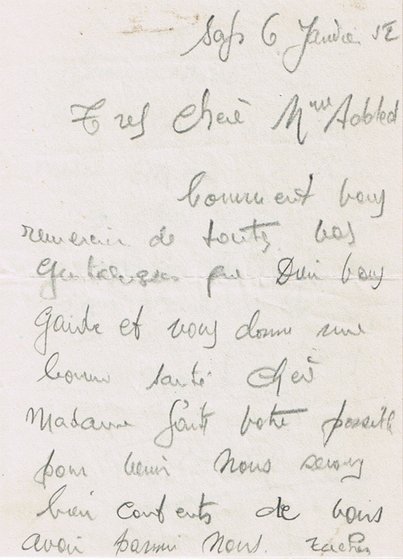 6 Janvier 52
Tres Cheré Mme
Comment vous
remercier de toutes vos
que Dieu vous
garde et vous donne une
bonne santé Cheré
Madame faite votre possible
pour venir Nous serons
bien contents de vous
avoir parmi Nous.